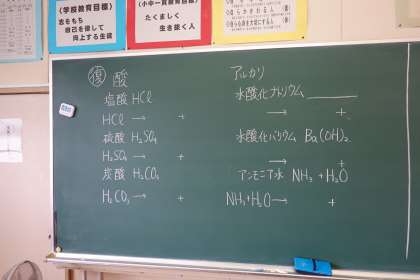 〈学校教育目標〉
志をもち
自己を律して
向上する生徒
〈小中一貫教育目標〉
たくましく
生き抜く人
復 酸
塩酸 HCl
HCl → +
硫酸 H₂SO₄
H₂SO₄ → +
炭酸 H₂CO₃
H₂CO₃ → +
アルカリ
水酸化ナトリウム ______
→ +
水酸化バリウム Ba(OH)₂
→ +
アンモニア水 NH₃ + H₂O
NH₃+H₂O → +